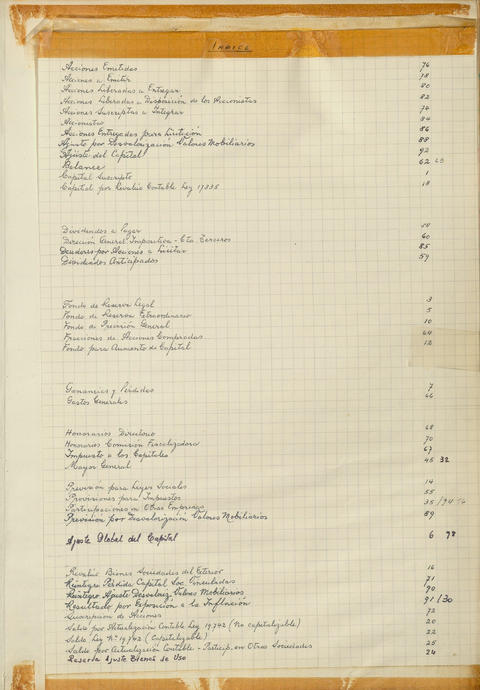 INDICE
Acciones Emitidas 76
Acciones a Emitir 78
Acciones Liberadas a Entregar 80
Acciones Liberadas a Disposición de los Accionistas 82
Acciones Suscriptas a Integrar 74
Accionistas 84
Acciones Entregadas para Licitación 86
Ajuste por Desvalorización Valores Mobiliarios 88
Ajuste del Capital 92
Balance 62
Capital Suscripto 1
Capital por Revalúo Contable Ley 17335 18
Dividendos a Pagar
Dirección General Impositiva - Cta. Terceros 60
Deudores por Acciones a Licitar 85
Dividendos Anticipados 59
Fondo de Reserva Legal 3
Fondo de Reserva Extraordinario 5
Fondo de Previsión General 10
Fracciones de Acciones Compradas 64
Fondo para Aumento de Capital 12
Ganancias y Pérdidas 7
Gastos Generales 66
Honorarios Directorio 68
Honorarios Comisión Fiscalizadora 70
Impuesto a los Capitales 67
Mayor General 45 32
Previsión para Leyes Sociales 14
Provisiones para Impuestos 55
Participaciones en Otras Empresas 35/94
Previsión por Desvalorización Valores Mobiliarios 89
Ajuste Global del Capital 6 98
Revalúo Bienes Sociedades del Exterior 16
Reintegro Pérdida Capital Soc. Vinculadas 71
Reintegro Ajuste Desvaloriz. Valores Mobiliarios 90
Resultado por Exposición a la Inflación 91/30
Suscripción de Acciones 72
Saldo por Actualización Contable Ley 19742 (No capitalizable) 20
Saldo Ley Nº 19742 (Capitalizable) 22
Saldo por Actualización Contable - Particip. en Otras Sociedades 25
Reserva Ajuste Bienes de Uso 24